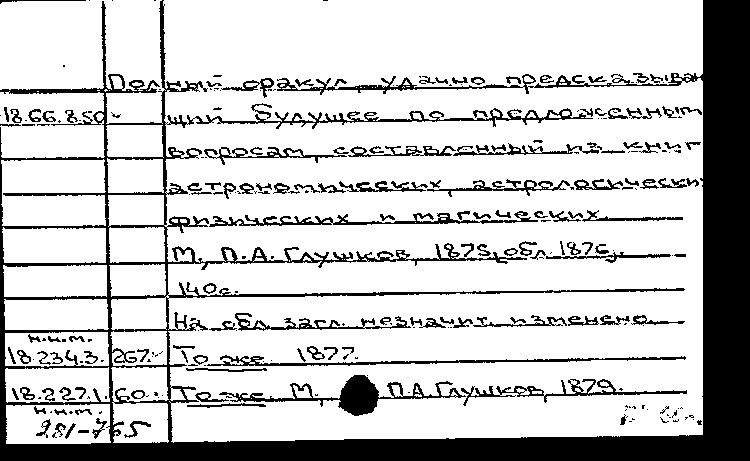 Полный оракул, удачно предсказываю
18.66.8.50 щий будущее по предложенным
вопросам, составленный из книг
астрономических, астрологических,
физических и магических.
М., П.А. Глушков, 1875, [обл. 1876].
140с.
На обл. загл. незначит. изменено.
н.н.м.
18.234.3.267. То же. 1877.
18.227.1.60. То же. М., П.А. Глушков, 1879.
н.н.м.
281-765